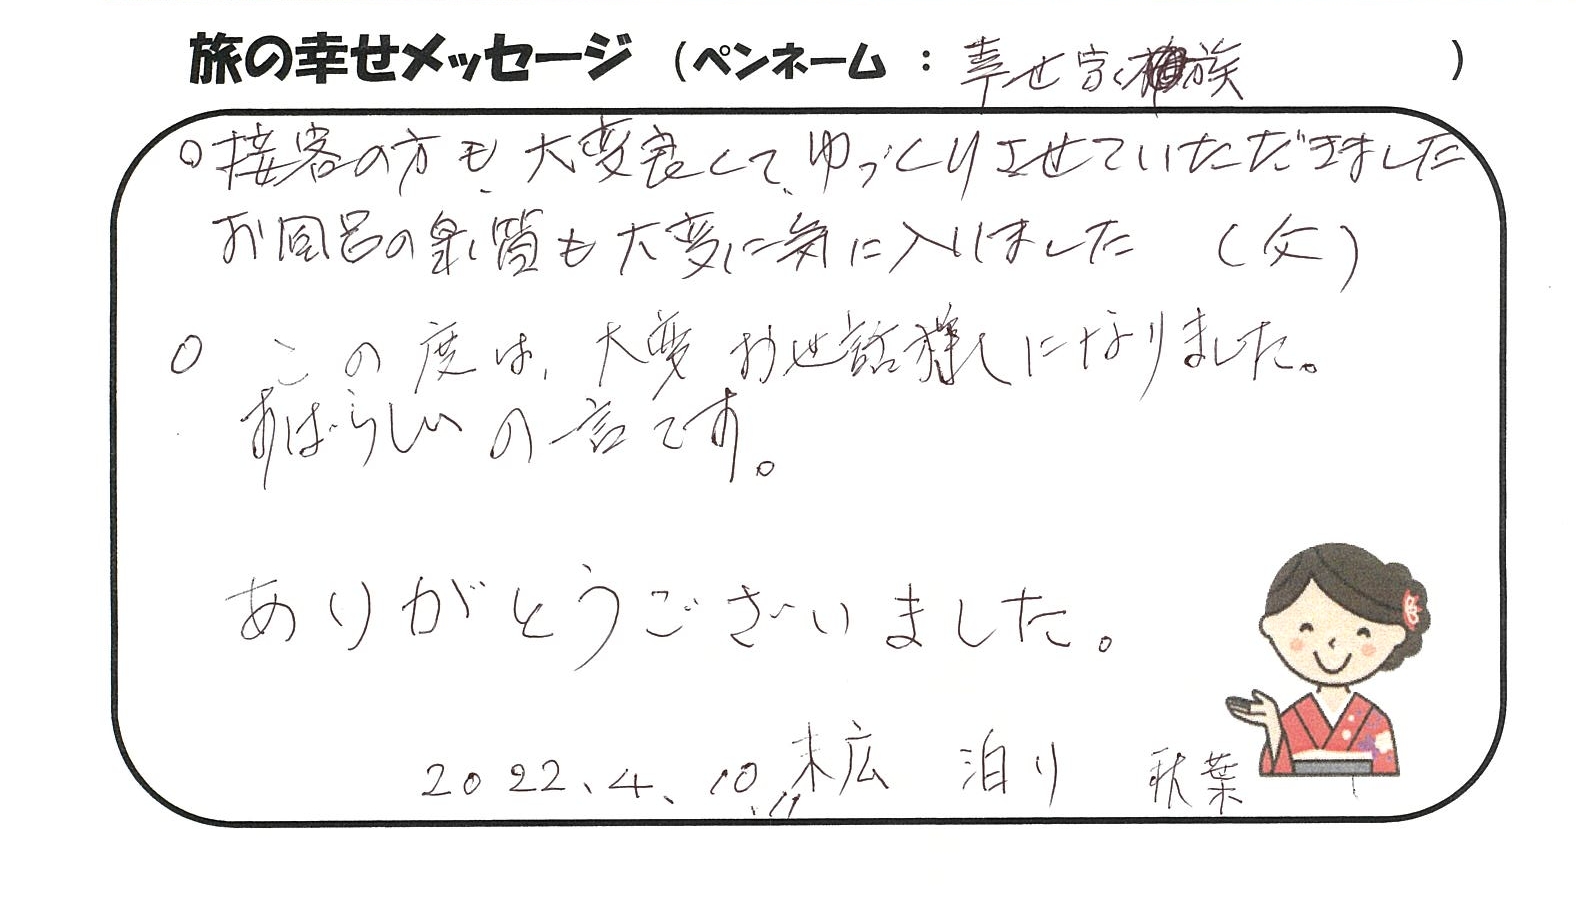 旅の幸せメッセージ (ペンネーム : 幸せ家族 )
○接客の方も、大変良くて、ゆっくりさせていただきました
お風呂の泉質も大変に気に入りました (父)
○ この度は、大変お世話様しになりました。
すばらしいの一言です。
ありがとうございました。
2022.4.10.11 末広 泊り 秋葉